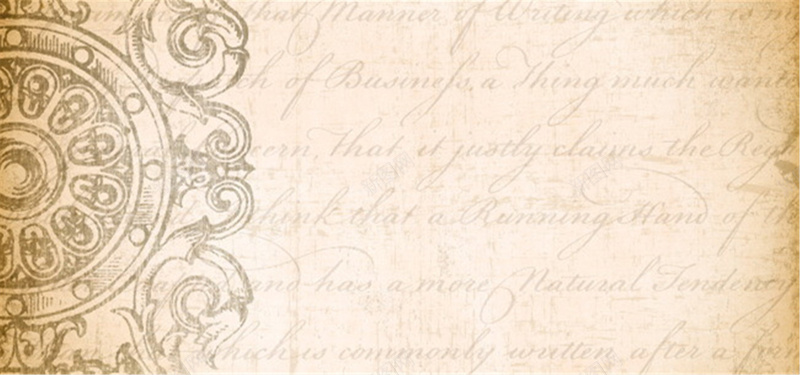 that Manner of Writing which is m
ch of Busineſs a Thing much wante
cern, that it justly claims the Reg
think that a Running Hand of th
has a more Natural Tendency
which is commonly written after a